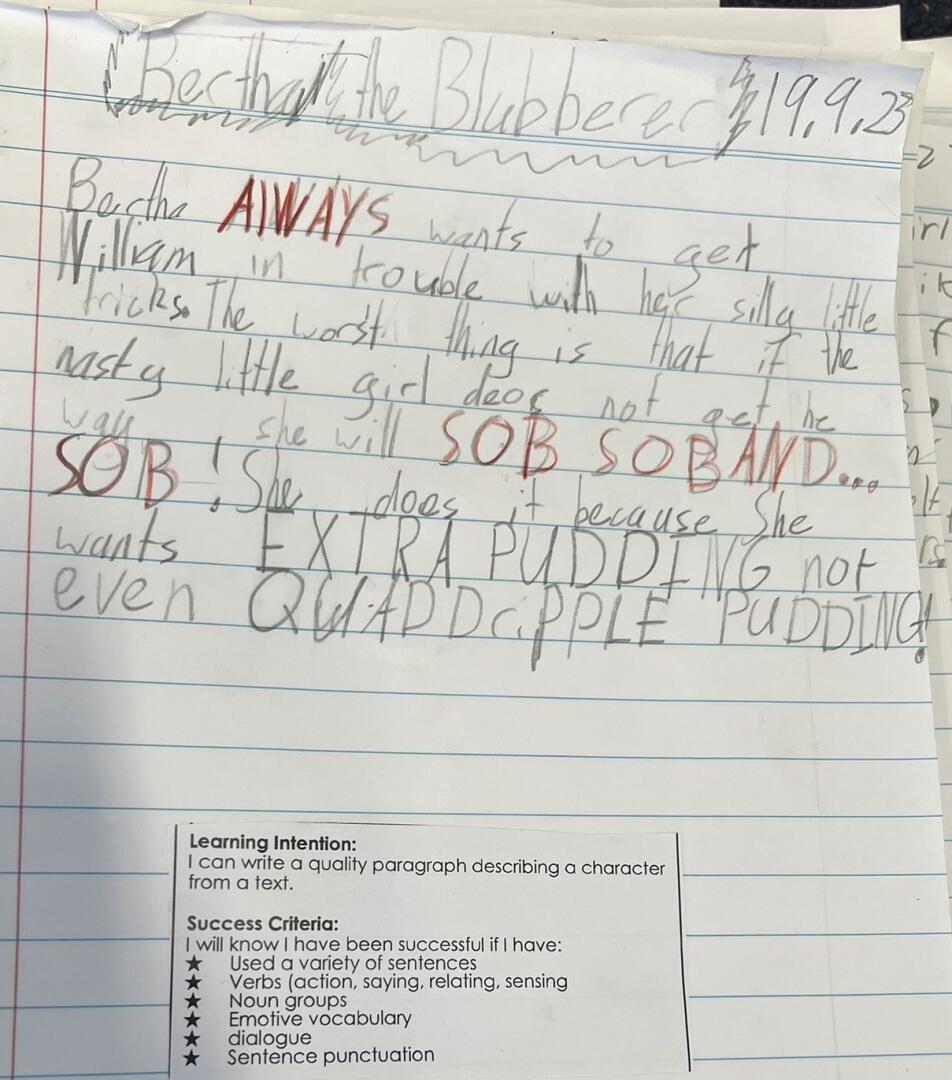 Bertha the Blubberer 19.9.23
Bertha AlWAYS wants to get
William in trouble with her silly little
tricks. The worst thing is that if the
nasty little girl deos not get he
way she will SOB SOB AND...
SOB! She does it because She
wants EXTRA PUDDING not
even QUADDripPLE PUDDING!
Learning Intention:
I can write a quality paragraph describing a character
from a text.
Success Criteria:
I will know I have been successful if I have:
★ Used a variety of sentences
★ Verbs (action, saying, relating, sensing
★ Noun groups
★ Emotive vocabulary
★ dialogue
★ Sentence punctuation